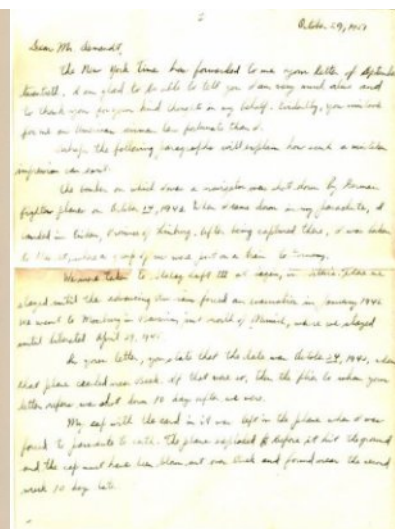 October 29, 1951
Dear Mr.
The New York Times has forwarded to me your letter of September
twentieth. I am glad to be able to tell you I am very much alive and
to thank you for your kind thoughts in my behalf. Evidently, you mistook
for me an American airman less fortunate than I.
Perhaps the following paragraphs will explain how such a mistaken
impression can exist.
The bomber on which I was a navigator was shot down by German
fighter planes on October 14, 194 When I came down in my parachute, I
landed in of Limburg. After being captured there, I was taken
to where a group of us were put on a train to Germany.
We were taken to Stalag Luft III at Sagan, in
stayed until the advancing Russians forced an evacuation in January 1945
We went to Moosburg in Bavaria, just north of Munich, where we stayed
until liberated April 29, 1945.
In your letter, you state that the date was October 24, 194 when
that plane crashed near If that were so, then the flier to whom your
letter refers was shot down 10 days after we were.
My cap with the card in it was left in the plane when I was
forced to parachute to earth. The plane exploded before it hit the ground
and the cap must have been blown out over and found near the second
wreck 10 days late